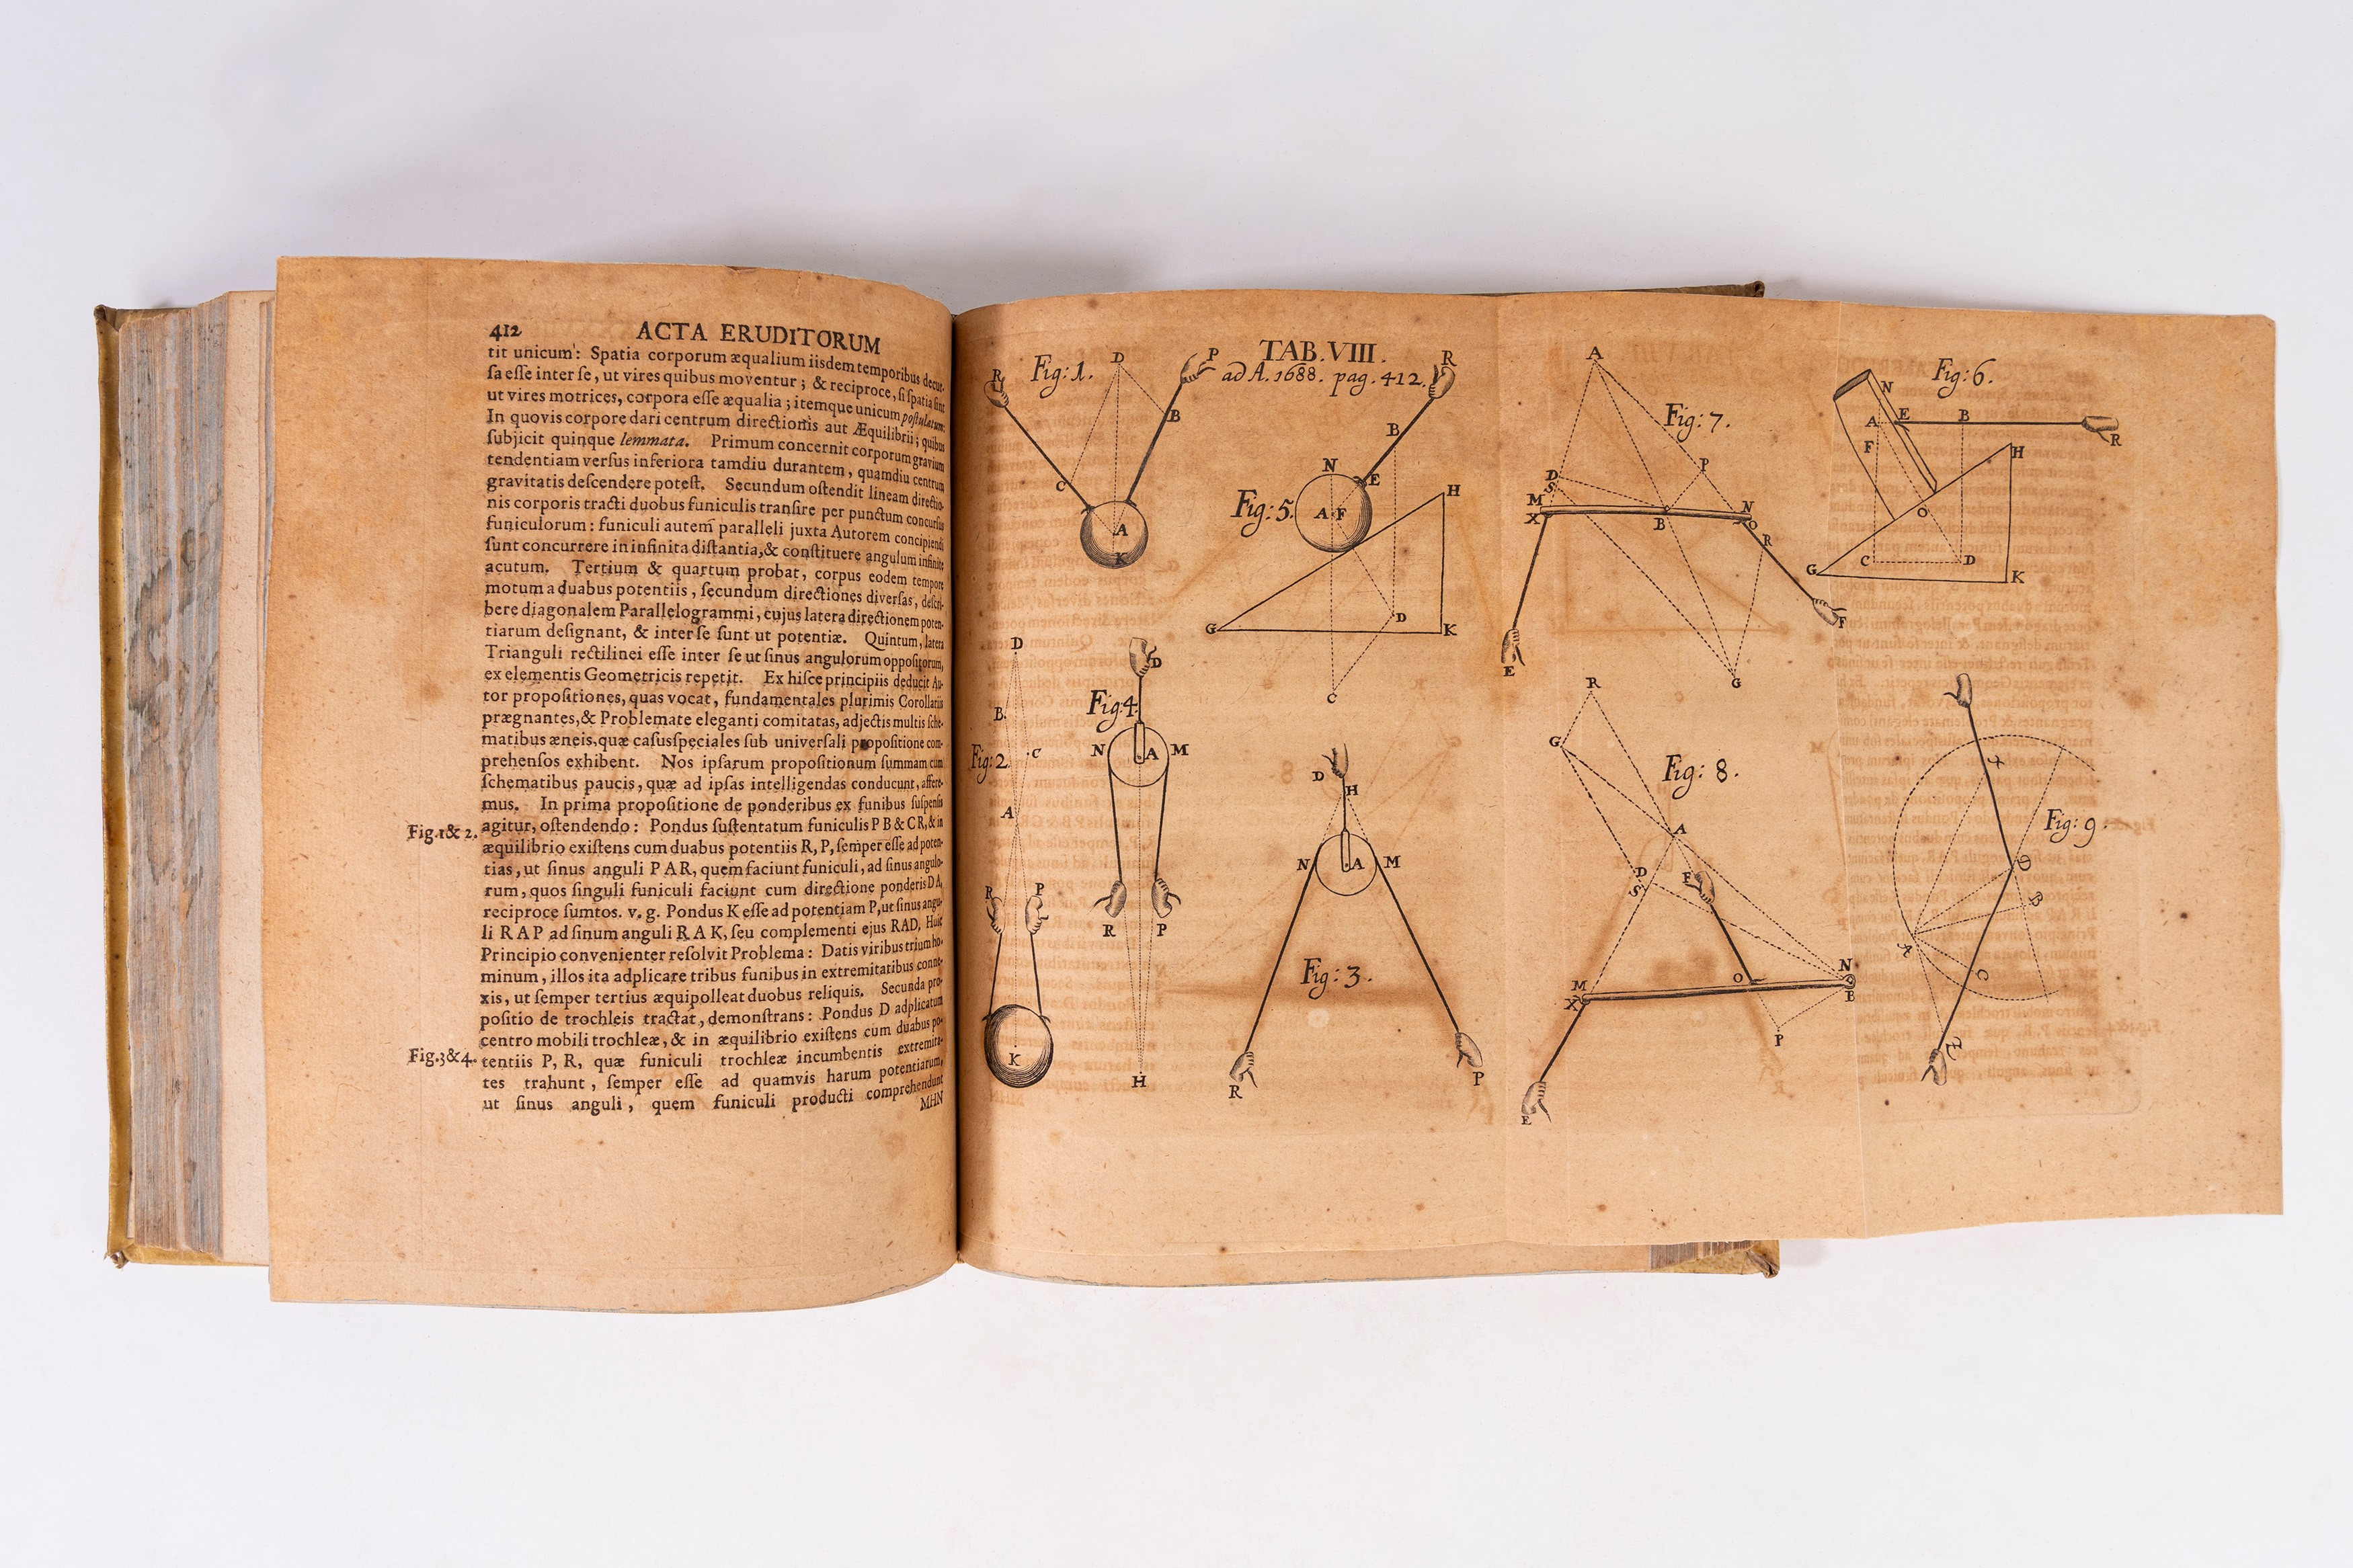 412 ACTA ERUDITORUM
tit unicum: Spatia corporum æqualium iisdem temporibus decur-
ſa eſſe inter ſe, ut vires quibus moventur; & reciproce, ſi ſpatia ſint
ut vires motrices, corpora eſſe æqualia; itemque unicum poſtulatum:
In quovis corpore dari centrum directionis aut Æquilibrii; quibus
ſubjicit quinque lemmata. Primum concernit corporum gravium
tendentiam verſus inferiora tamdiu durantem, quamdiu centrum
gravitatis deſcendere poteſt. Secundum oſtendit lineam directio-
nis corporis tracti duobus funiculis tranſire per punctum concurſus
funiculorum: funiculi autem paralleli juxta Autorem concipiendi
ſunt concurrere in infinita diſtantia, & conſtituere angulum infinite
acutum. Tertium & quartum probat, corpus eodem tempore
motum a duabus potentiis, ſecundum directiones diverſas, deſcri-
bere diagonalem Parallelogrammi, cujus latera directionem poten-
tiarum deſignant, & inter ſe ſunt ut potentiæ. Quintum, latera
Trianguli rectilinei eſſe inter ſe ut ſinus angulorum oppoſitorum,
ex elementis Geometricis repetit. Ex hiſce principiis deducit Au-
tor propoſitiones, quas vocat, fundamentales plurimis Corollariis
prægnantes, & Problemate eleganti comitatas, adjectis multis ſche-
matibus æneis, quæ caſus ſpeciales ſub univerſali propoſitione com-
prehenſos exhibent. Nos ipſarum propoſitionum ſummam cum
ſchematibus paucis, quæ ad ipſas intelligendas conducunt, affere-
mus. In prima propoſitione de ponderibus ex funibus ſuſpenſis
Fig.1& 2. agitur, oſtendendo: Pondus ſuſtentatum funiculis P B & C R, & in
æquilibrio exiſtens cum duabus potentiis R, P, ſemper eſſe ad poten-
tias, ut ſinus anguli P A R, quem faciunt funiculi, ad ſinus angulo-
rum, quos ſinguli funiculi faciunt cum directione ponderis D A,
reciproce ſumtos. v. g. Pondus K eſſe ad potentiam P, ut ſinus angu-
li R A P ad ſinum anguli R A K, ſeu complementi ejus RAD. Huic
Principio convenienter reſolvit Problema: Datis viribus trium ho-
minum, illos ita adplicare tribus funibus in extremitatibus conne-
xis, ut ſemper tertius æquipolleat duobus reliquis. Secunda pro-
poſitio de trochleis tractat, demonſtrans: Pondus D adplicatum
centro mobili trochleæ, & in æquilibrio exiſtens cum duabus po-
Fig.3&4. tentiis P, R, quæ funiculi trochleæ incumbentis extremita-
tes trahunt, ſemper eſſe ad quamvis harum potentiarum,
ut ſinus anguli, quem funiculi producti comprehendunt
MHN
TAB. VIII.
ad A. 1688. pag. 412.
Fig: 1.
R D P B C A K
Fig: 2.
D B C A R P K
Fig 4.
D N A M R P H
Fig: 5.
R B N E A F H G D K C
Fig: 3.
D H N A M R P
Fig: 7.
A D S M X B P N O R E F G
Fig: 6.
N A E B R F H O C D G K
Fig: 8.
R G A D S F M X O N B P E
Fig: 9.
B A C